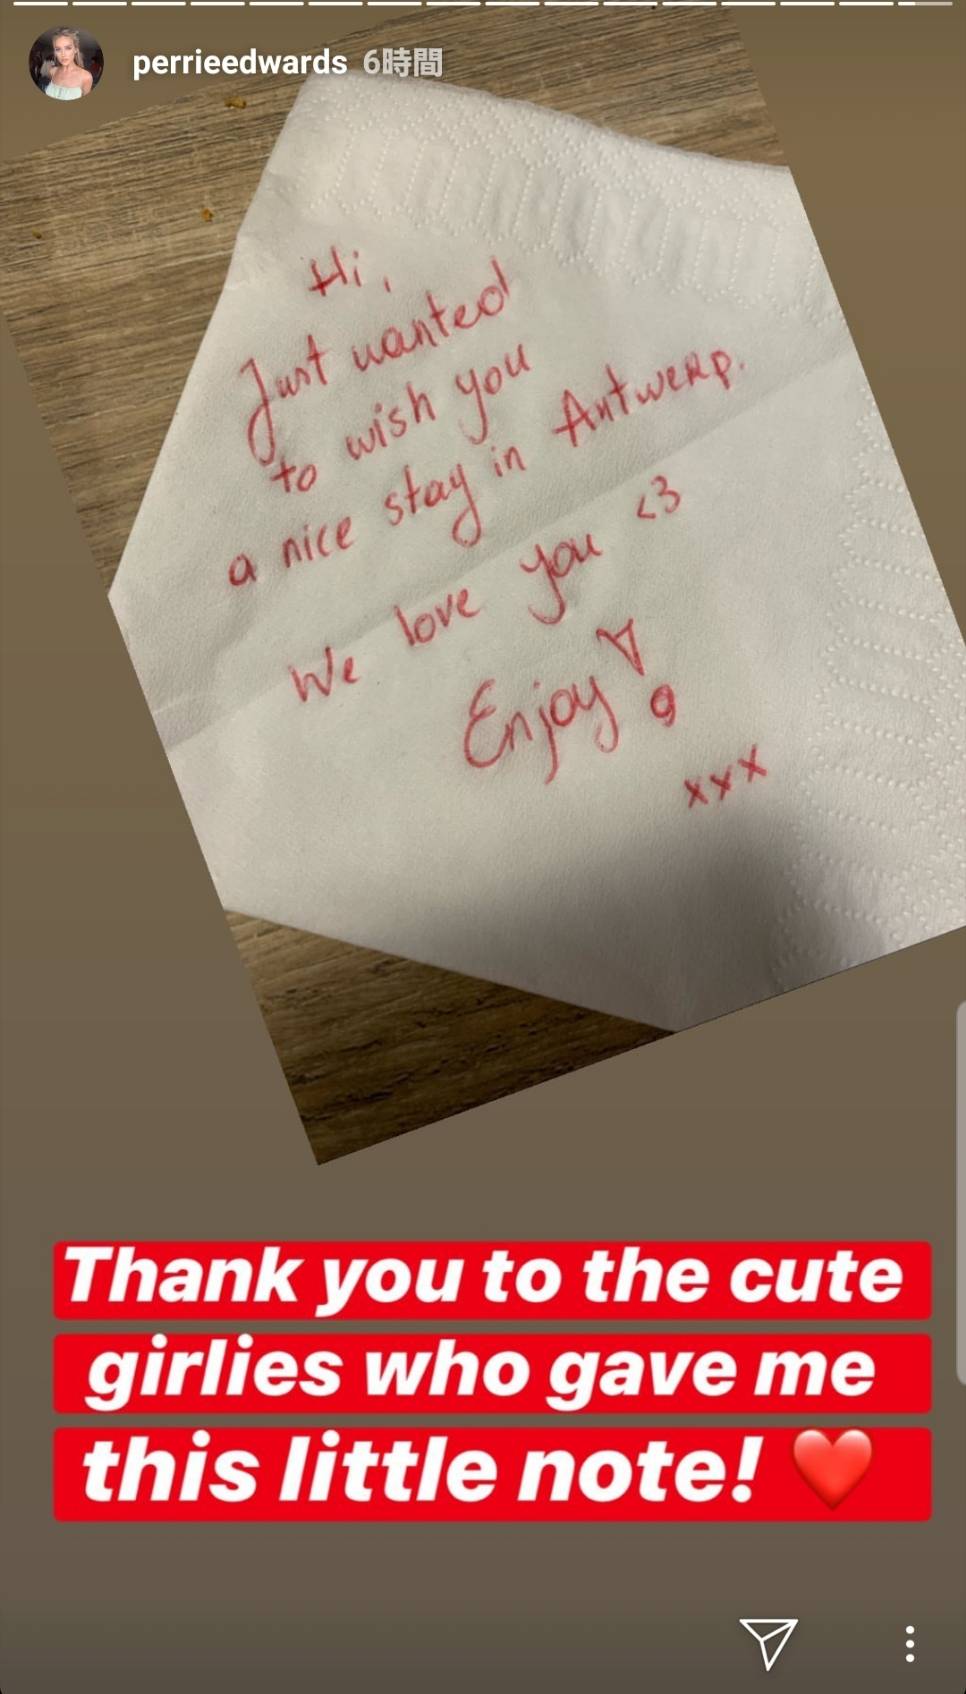 perrieedwards 6時間
Hi,
Just wanted
to wish you
a nice stay in Antwerp.
We love you <3
Enjoy!
xxx
Thank you to the cute
girlies who gave me
this little note! ❤️